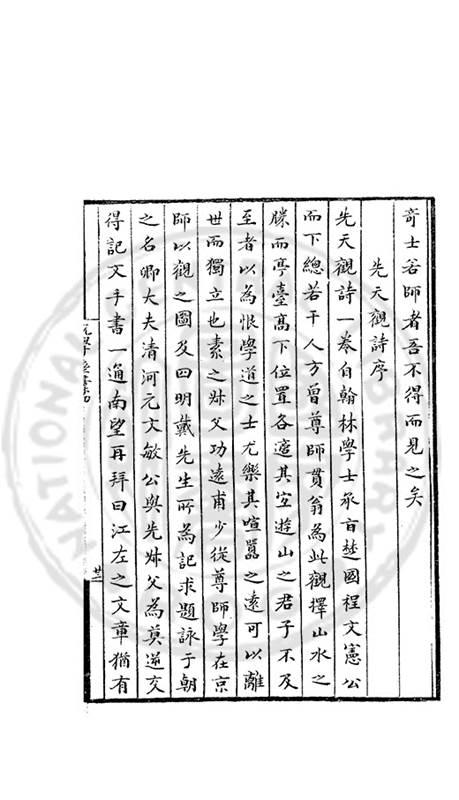 奇士若師者吾不得而見之矣
先天觀詩序
先天觀詩一卷自翰林學士承旨楚國程文憲公
而下總若干人方曾尊師貫翁為此觀擇山水之
勝而亭臺髙下位置各適其宜遊山之君子不及
至者以為恨學道之士尤樂其喧囂之遠可以離
世而獨立也素之叔父功遠甫少從尊師學在京
師以觀之圖及四明戴先生所為記求題詠于朝
之名卿大夫清河元文敏公與先叔父為莫逆交
得記文手書一通南望再拜曰江左之文章猶有